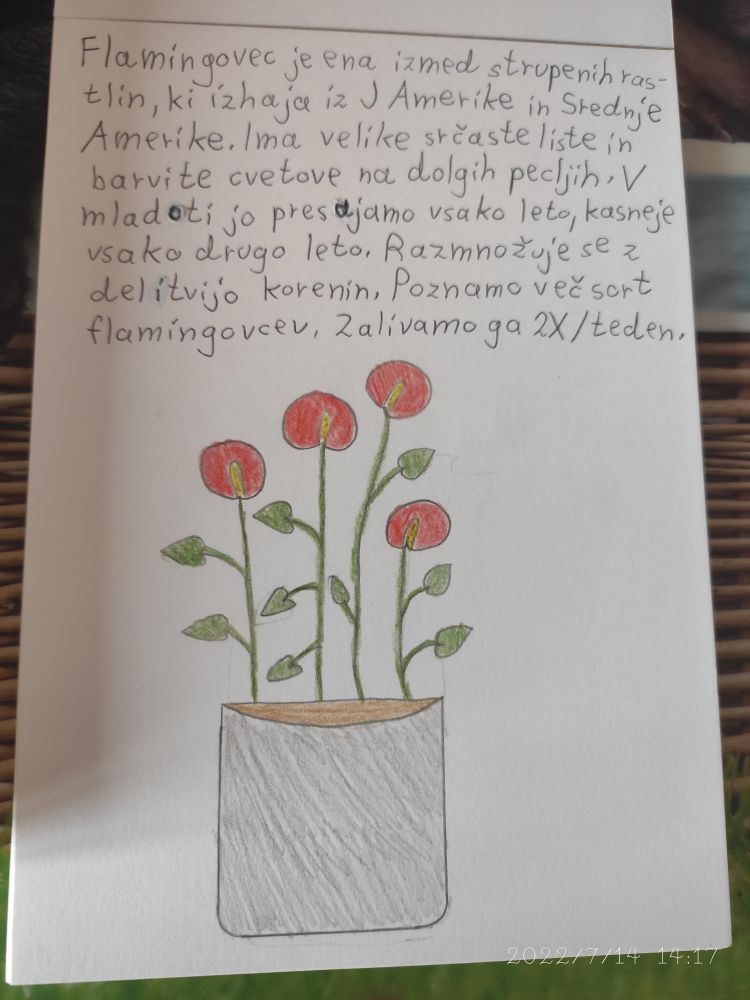 Flamingovec je ena izmed strupenih ras-
tlin, ki izhaja iz J Amerike in Srednje
Amerike. Ima velike srčaste liste in
barvite cvetove na dolgih pecljih. V
mladoti jo presajamo vsako leto, kasneje
vsako drugo leto. Razmnožuje se z
delitvijo korenin. Poznamo več sort
flamingovcev. Zalivamo ga 2X/teden.
2022/7/14 14:17